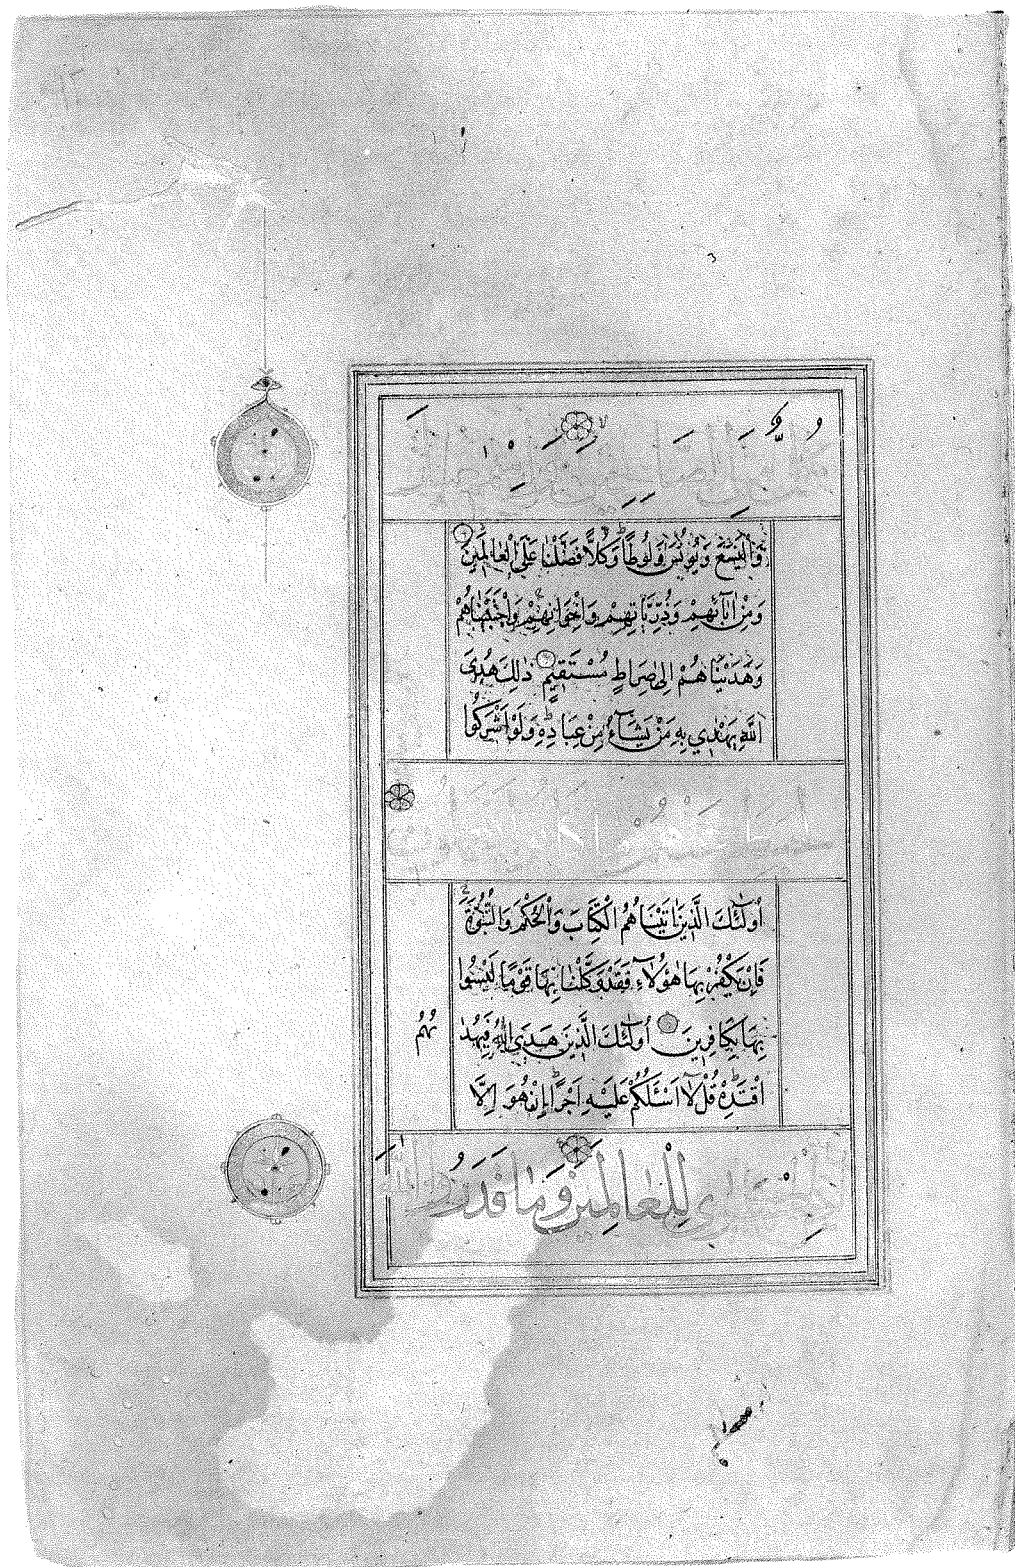 كل من الصالحين واسمعيل
وَالْيَسَعَ وَيُونُسَ وَلُوطًا وَكُلًّا فَضَّلْنَا عَلَى الْعَالَمِينَ
وَمِنْ اٰبَآئِهِمْ وَذُرِّيَّاتِهِمْ وَاِخْوَانِهِمْ وَاجْتَبَيْنَاهُمْ
وَهَدَيْنَاهُمْ اِلٰى صِرَاطٍ مُسْتَقِيمٍ ذٰلِكَ هُدَى
اللّٰهِ يَهْدِي بِهِ مَنْ يَشَآءُ مِنْ عِبَادِهِ وَلَوْ اَشْرَكُوا
لحبط عَنْهُمْ ما كانوا يعملون
اُولٰٓئِكَ الَّذِينَ اٰتَيْنَاهُمُ الْكِتَابَ وَالْحُكْمَ وَالنُّبُوَّةَ
فَاِنْ يَكْفُرْ بِهَا هٰٓؤُلَآءِ فَقَدْ وَكَّلْنَا بِهَا قَوْمًا لَيْسُوا
بِهَا بِكَافِرِينَ اُولٰٓئِكَ الَّذِينَ هَدَى اللّٰهُ فَبِهُدٰ
ىهُمُ
اقْتَدِهْ قُلْ لَآ اَسْئَلُكُمْ عَلَيْهِ اَجْرًا اِنْ هُوَ اِلَّا
ذكرى لِلْعَالَمِينَ وَمَا قَدَرُوا الله